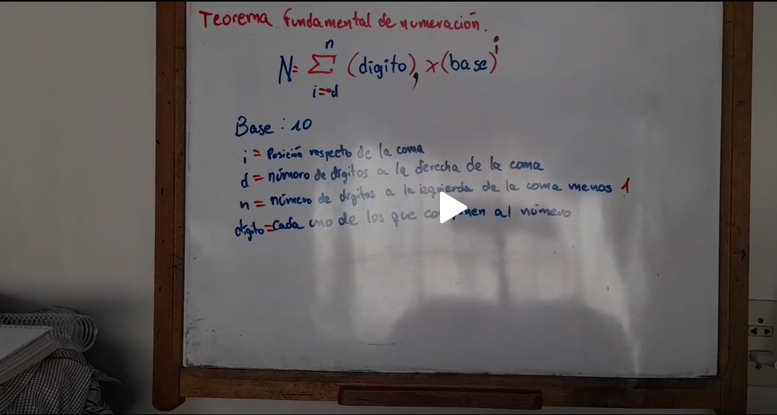 Teorema fundamental de numeración.
n
N= Σ (digito), x (base)^i
i=-d
Base : 10
i = Posición respecto de la coma
d = número de digitos a la derecha de la coma
n = número de digitos a la izquierda de la coma menos 1
digito=Cada uno de los que componen al número